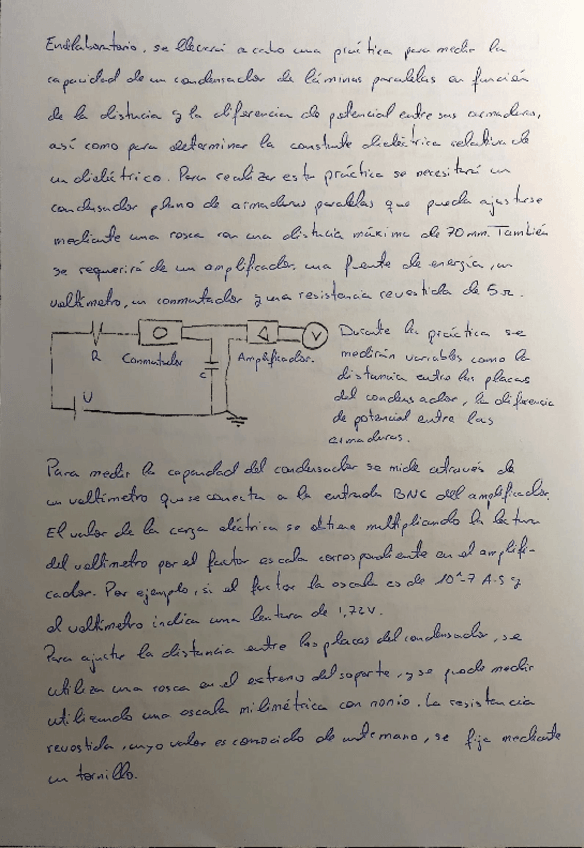 En el laboratorio, se llevará a cabo una práctica para medir la
capacidad de un condensador de láminas paralelas en función
de la distancia y la diferencia de potencial entre sus armaduras,
así como para determinar la constante dieléctrica relativa de
un dieléctrico. Para realizar esta práctica se necesitará un
condensador plano de armaduras paralelas que pueda ajustarse
mediante una rosca con una distancia máxima de 70 mm. También
se requerirá de un amplificador, una fuente de energía, un
voltímetro, un conmutador y una resistencia revestida de 5Ω.
R
Conmutador
C
Amplificador.
V
U
Durante la práctica se
medirán variables como la
distancia entre las placas
del condensador, la diferencia
de potencial entre las
armaduras.
Para medir la capacidad del condensador se mide a través de
un voltímetro que se conecta a la entrada BNC del amplificador.
El valor de la carga eléctrica se obtiene multiplicando la lectura
del voltímetro por el factor escala correspondiente en el amplifi-
cador. Por ejemplo, si el factor la escala es de 10^-7 A·S y
el voltímetro indica una lectura de 1,72V.
Para ajustar la distancia entre las placas del condensador, se
utiliza una rosca en el extremo del soporte, y se puede medir
utilizando una escala milimétrica con nonio. La resistencia
revestida, cuyo valor es conocido de antemano, se fija mediante
un tornillo.